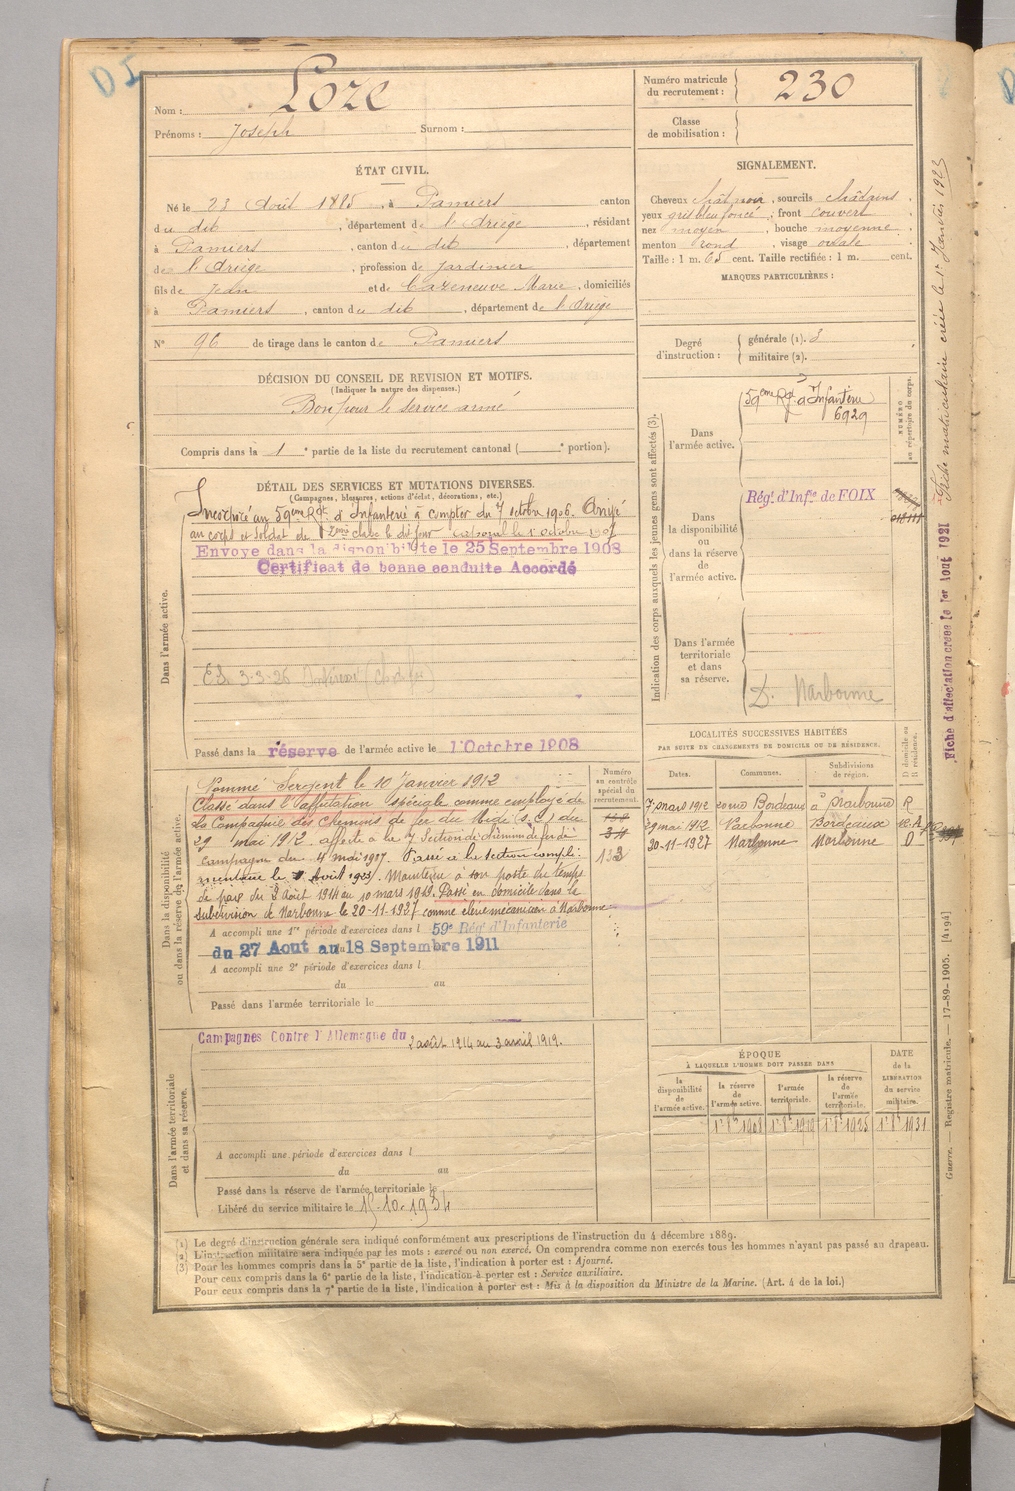 D I
Nom : Loze
Prénoms : Joseph Surnom :
Numéro matricule du recrutement : 230
Classe de mobilisation :
ÉTAT CIVIL.
Né le 23 Août 1885, à Pamiers canton
du dit, département de l'Ariège, résidant
à Pamiers, canton du dit, département
de l'Ariège, profession de Jardinier
fils de Jean et de Cazeneuve Marie, domiciliés
à Pamiers, canton du dit, département de l'Ariège
N° 96 de tirage dans le canton de Pamiers
SIGNALEMENT.
Cheveux chât noir, sourcils châtains,
yeux gris bleu foncé, front couvert
nez moyen, bouche moyenne,
menton rond, visage ovale
Taille : 1 m. 65 cent. Taille rectifiée : 1 m. cent.
MARQUES PARTICULIÈRES :
Degré d'instruction : générale (1). 3
militaire (2).
DÉCISION DU CONSEIL DE REVISION ET MOTIFS.
(Indiquer la nature des dispenses.)
Bon pour le service armé
Compris dans la 1e partie de la liste du recrutement cantonal ( e portion).
DÉTAIL DES SERVICES ET MUTATIONS DIVERSES.
(Campagnes, blessures, actions d'éclat, décorations, etc.)
Dans l'armée active.
Incorporé au 59eme Rgt d'Infanterie à compter du 7 octobre 1906. Arrivé
au corps et soldat de 2eme classe le dit jour caporal le 1 octobre 1907
Envoyé dans la disponibilité le 25 Septembre 1908
Certificat de bonne conduite Accordé
3-3-26
Passé dans la réserve de l'armée active le 1 Octobre 1908
Dans la disponibilité ou dans la réserve de l'armée active.
Nommé Sergent le 10 Janvier 1912
Classé dans l'affectation spéciale comme employé de
la Compagnie des Chemins de fer du Midi (S.C) du
29 mai 1912 affecté à la 7 Section de chemin de fer de
campagne du 4 mai 1917. Passé à la section complé-
mentaire le 1 Août 1923. Maintenu à son poste du temps
de paix du 2 Août 1914 au 10 mars 1919. Passé en domicile dans la
subdivision de Narbonne le 20-11-1927 comme élève mécanicien à Narbonne
A accompli une 1re période d'exercices dans l 59e Rég. d'Infanterie
du 27 Aout au 18 Septembre 1911
A accompli une 2e période d'exercices dans l
du au
Passé dans l'armée territoriale le
Numéro au contrôle spécial du recrutement.
133
Dans l'armée territoriale et dans sa réserve.
Campagnes Contre l'Allemagne du 2 août 1914 au 3 avril 1919.
A accompli une période d'exercices dans l
du au
Passé dans la réserve de l'armée territoriale le
Libéré du service militaire le 15-10-1934
Indication des corps auxquels les jeunes gens sont affectés (3).
NUMÉRO au répertoire du corps.
Dans l'armée active.
59eme Rgt d'Infanterie
6929
Dans la disponibilité ou dans la réserve de l'armée active.
Rég. d'Infie de FOIX
Dans l'armée territoriale et dans sa réserve.
D. Narbonne
LOCALITÉS SUCCESSIVES HABITÉES
PAR SUITE DE CHANGEMENTS DE DOMICILE OU DE RÉSIDENCE.
Dates. Communes. Subdivisions de région. D domicile ou R résidence.
7 mars 1912 Bordeaux à Narbonne R
29 mai 1912 Narbonne Bordeaux R.A
20-11-1927 Narbonne Narbonne D
ÉPOQUE
À LAQUELLE L'HOMME DOIT PASSER DANS
la disponibilité de l'armée active. la réserve de l'armée active. l'armée territoriale. la réserve de l'armée territoriale.
DATE de la LIBÉRATION du service militaire.
1r 8bre 1908 1r 8bre 1919 1r 8bre 1925 1r 8bre 1931
Fiche matriculaire créée le 1er Janvier 1923
Fiche d'affectation créée le 1er Août 1921
Guerre. — Registre matricule. — 17-89-1905. [4194]
(1) Le degré d'instruction générale sera indiqué conformément aux prescriptions de l'instruction du 4 décembre 1889.
(2) L'instruction militaire sera indiquée par les mots : exercé ou non exercé. On comprendra comme non exercés tous les hommes n'ayant pas passé au drapeau.
(3) Pour les hommes compris dans la 5e partie de la liste, l'indication à porter est : Ajourné.
Pour ceux compris dans la 6e partie de la liste, l'indication à porter est : Service auxiliaire.
Pour ceux compris dans la 7e partie de la liste, l'indication à porter est : Mis à la disposition du Ministre de la Marine. (Art. 4 de la loi.)